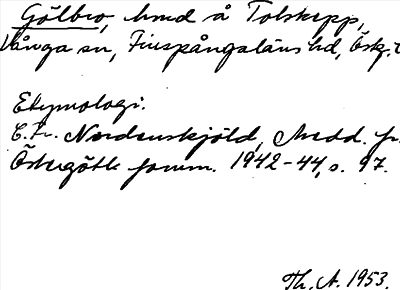 Gölbro, hmd å Tolskepp,
Vånga sn, Finspångaläns hd, Östg.
Etymologi.
C. Fr. Nordenskjöld, Medd. fr.
Östergötl. fornm. 1942-44, s. 97.
Th. A. 1953.